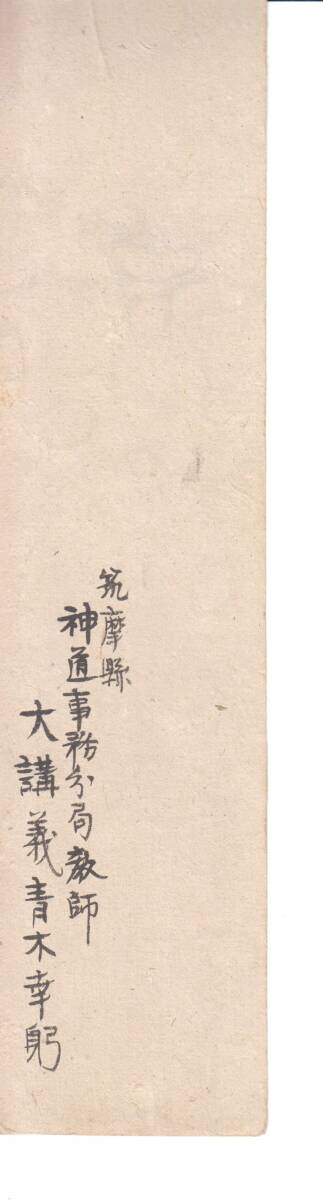 筑摩縣
神道事務分局教師
大講義青木幸躬